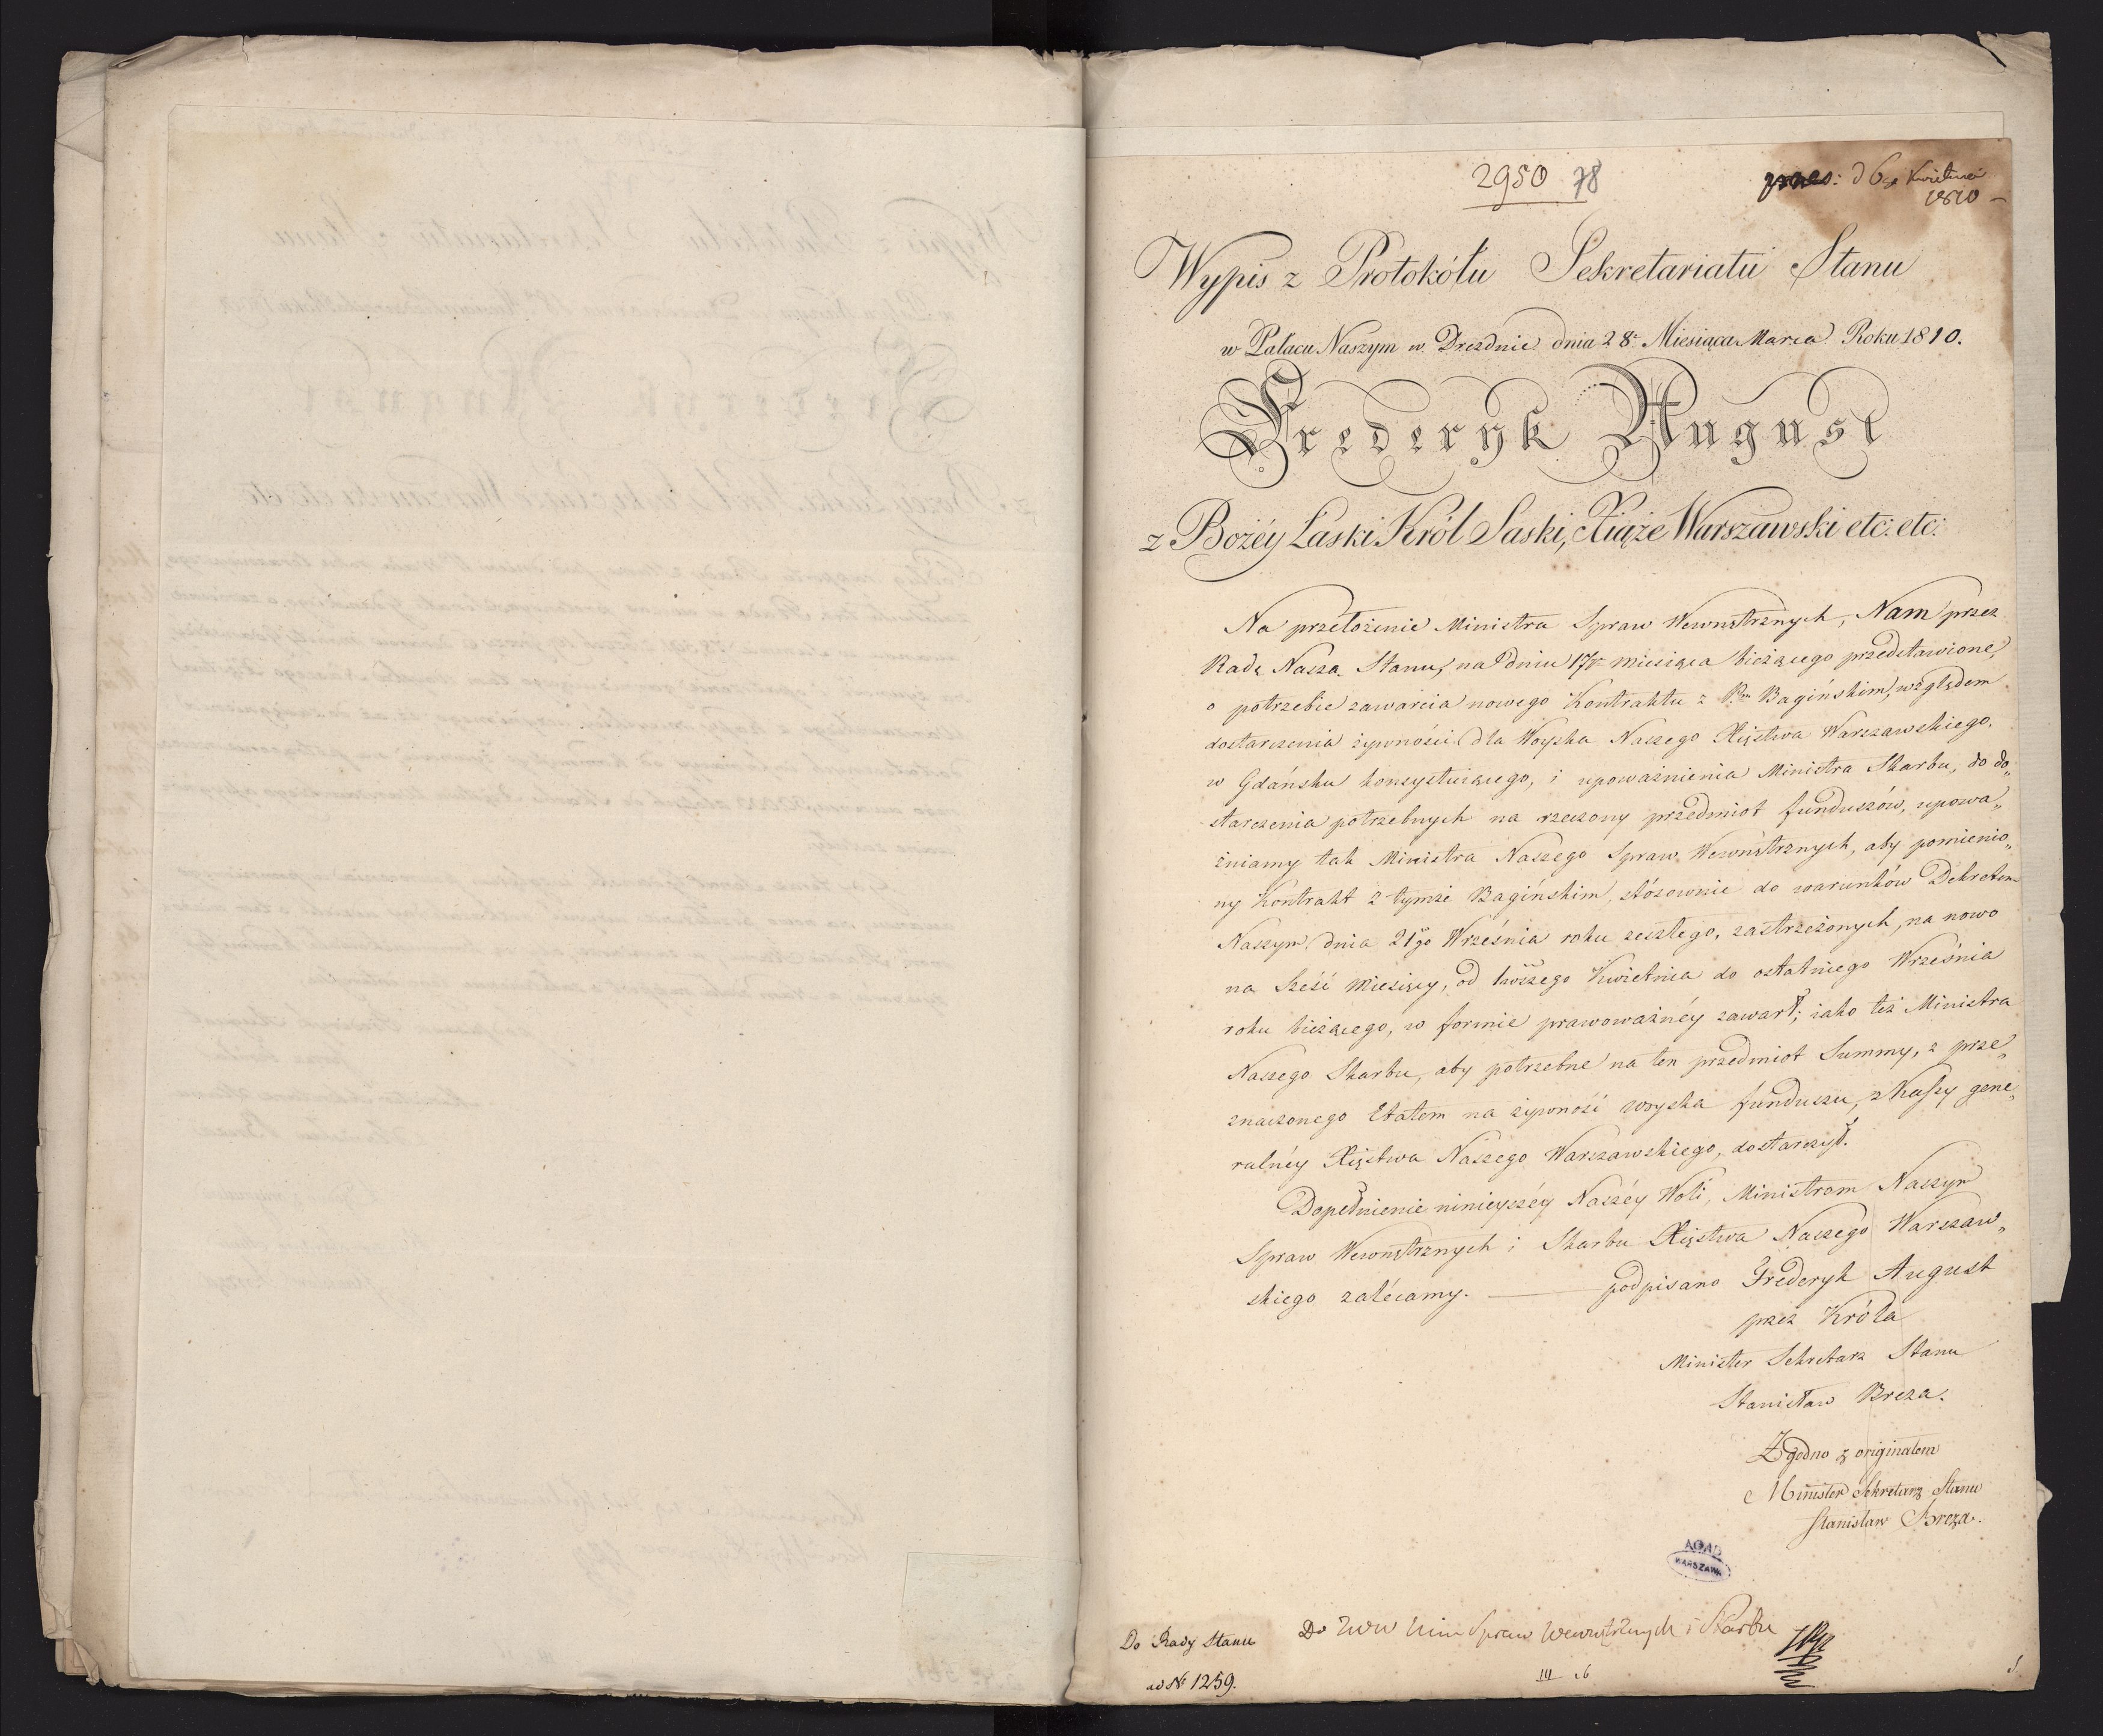 2950 78
praes: d 6go Kwietnia
1810 –
Wypis z Protokółu Sekretariatu Stanu
w Pałacu Naszym w Dreznie dnia 28. Miesiąca Marca Roku 1810.
Frederyk August
z Bożéy Łaski Król Saski, Xiąże Warszawski etc: etc:
Na przełożenie Ministra Spraw Wewnętrznych, Nam przez
Radę Nasza Stanu, na dniu 17m miesiąca bieżącego przedstawione,
o potrzebie zawarcia nowego Kontraktu z P.m Bagińskim, względem
dostarczenia żywności dla Woyska Naszego Xięstwa Warszawskiego,
w Gdańsku konsystuiącego, i upoważnienia Ministra Skarbu, do do„
starczenia potrzebnych na rzeczony przedmiot funduszów, upowa„
żniamy tak Ministra Naszego Spraw Wewnętrznych, aby pomienio„
ny Kontrakt z tymże Bagińskim, stósownie do warunków Dekretem
Naszym, dnia 21go Września roku zeszłego, zastrzeżonych, na nowo
na sześć miesięcy, od 1wszego Kwietnia do ostatniego Września
roku bieżącego, w formie prawoważnéy zawarł; iako też Ministra
Naszego Skarbu, aby potrzebne na ten przedmiot Summy, z prze„
znaczonego Etatem na żywność woyska funduszu, z Kassy gene„
ralnéy Xięstwa Naszego Warszawskiego, dostarczył.
Dopełnienie ninieyszéy Naszéy Woli, Ministrom Naszym
Spraw Wewnętrznych i Skarbu Xięstwa Naszego Warszaw„
skiego zalécamy. — podpisano Frederyk August
przez Króla
Minister Sekretarz Stanu
Stanisław Breza.
Zgodno z originałem
Minister Sekretarz Stanu
Stanisław Breza.
AGAD
WARSZAWA
Do Rady Stanu
ad No 1259.
Do Spraw Wewnętrznych i Skarbu
III 16